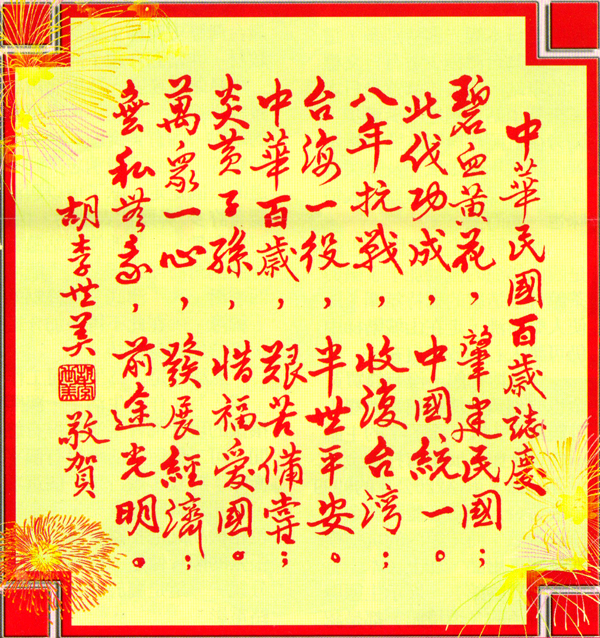 中華民國百歲誌慶
碧血黃花，肇建民國；
北伐功成，中國統一。
八年抗戰，收復台灣；
台海一役，半世平安。
中華百歲，艱苦備嘗；
炎黃子孫，惜福愛國。
萬眾一心，發展經濟；
無私無，前途光明。
胡李世美 敬賀